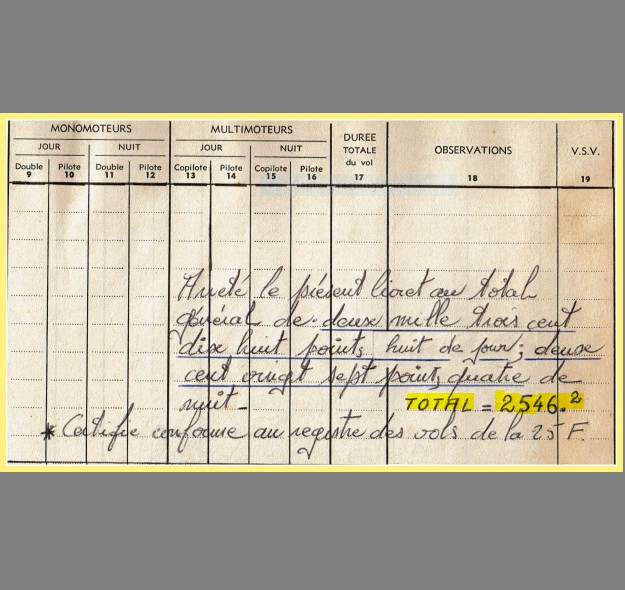 MONOMOTEURS MULTIMOTEURS DUREE TOTALE du vol OBSERVATIONS V.S.V.
JOUR NUIT JOUR NUIT
Double Pilote Double Pilote Copilote Pilote Copilote Pilote
9 10 11 12 13 14 15 16 17 18 19
Arreté le présent livret au total
général de. deux mille trois cent
dix huit points huit de jour; deux
cent vingt sept points quatre de
nuit_
TOTAL = 2,546.2
* Certifie conforme au registre des vols de la 25 F.